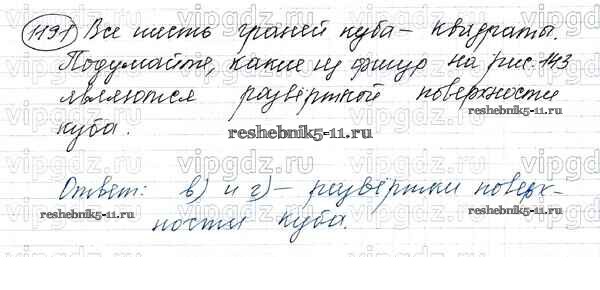 1191 Все шесть граней куба – квадраты.
Подумайте, какие из фигур на рис. 143
являются развёрткой поверхности
куба.
reshebnik5-11.ru
Ответ: в) и г) – развёртки поверх-
reshebnik5-11.ru
reshebnik5-11.ru
ности куба.
vipgdz.ru